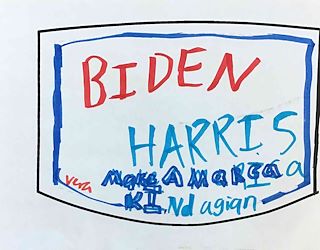 BIDEN
HARRIS
Make AMaRICa
KINd agian